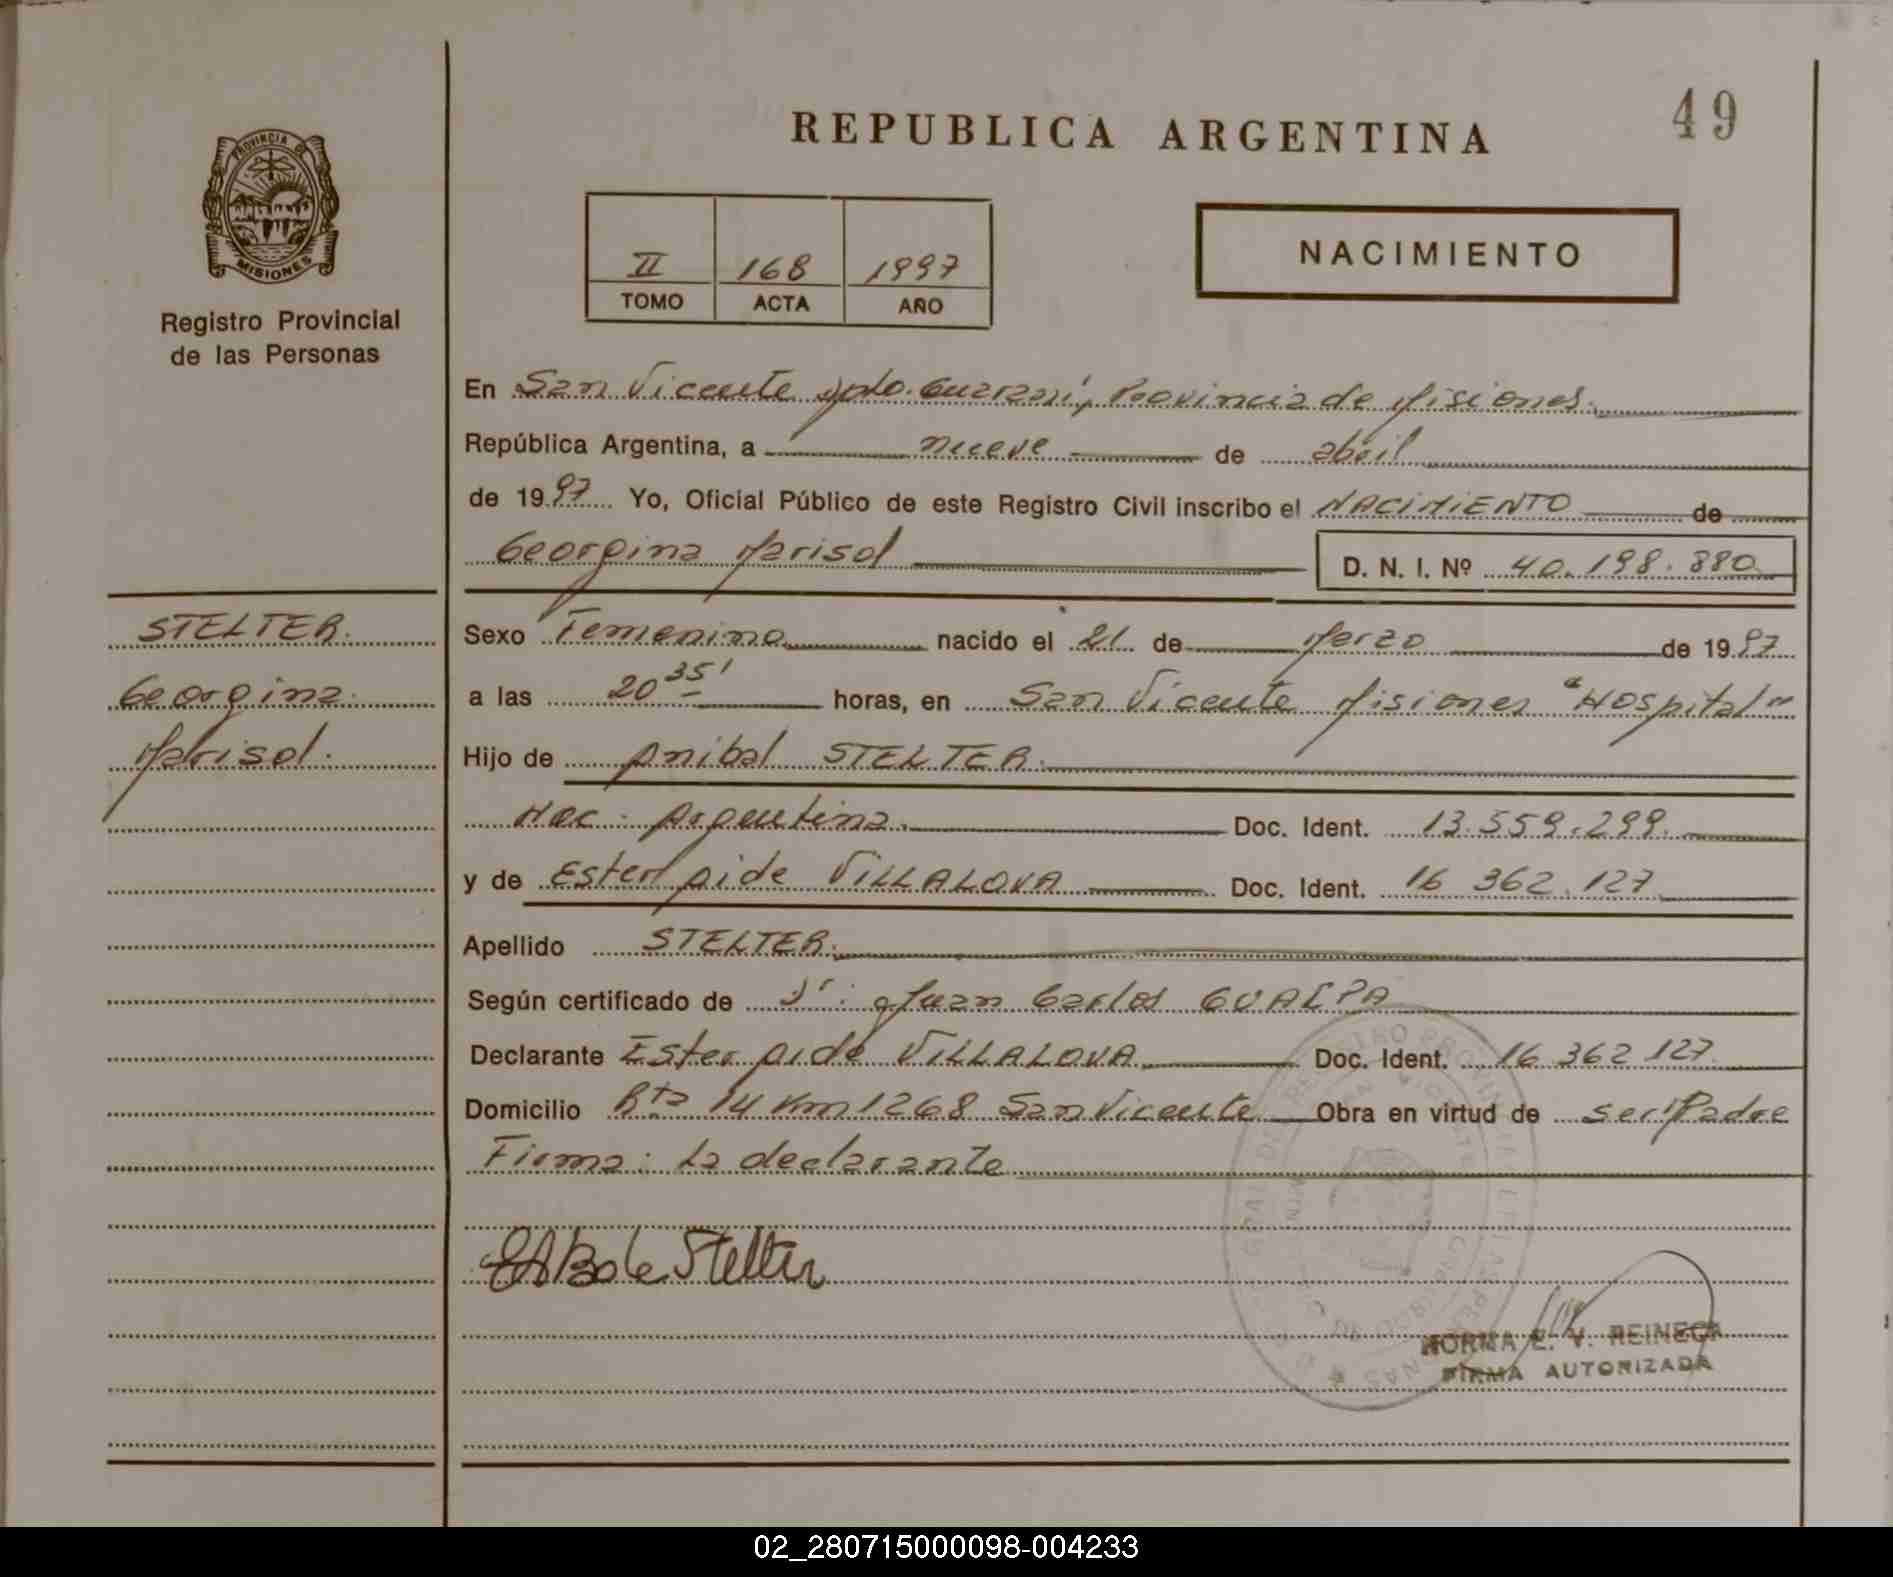 49
REPUBLICA ARGENTINA
PROVINCIA DE
MISIONES
Registro Provincial
de las Personas
II 168 1997
TOMO ACTA AÑO
NACIMIENTO
En San Vicente Dpto. Guaraní, Provincia de Misiones.
República Argentina, a nueve de abril
de 1997 Yo, Oficial Público de este Registro Civil inscribo el NACIMIENTO de
Georgina Marisol D. N. I. Nº 40.198.880
STELTER.
Georgina
Marisol.
Sexo Femenino nacido el 21 de Marzo de 1997
a las 20 35' horas, en San Vicente Misiones "Hospital"
Hijo de Anibal STELTER.
Nac. Argentina. Doc. Ident. 13.559.299.
y de Ester Aide VILLALOVA Doc. Ident. 16 362.127
Apellido STELTER.
Según certificado de Juan Carlos
Declarante Ester Aide VILLALOVA Doc. Ident. 16 362 127
Domicilio Rta 14 Km 1268 San Vicente Obra en virtud de ser Padre
Firma: La declarante
Stelter
NORMA E. V. REINECK
FIRMA AUTORIZADA
02_280715000098-004233